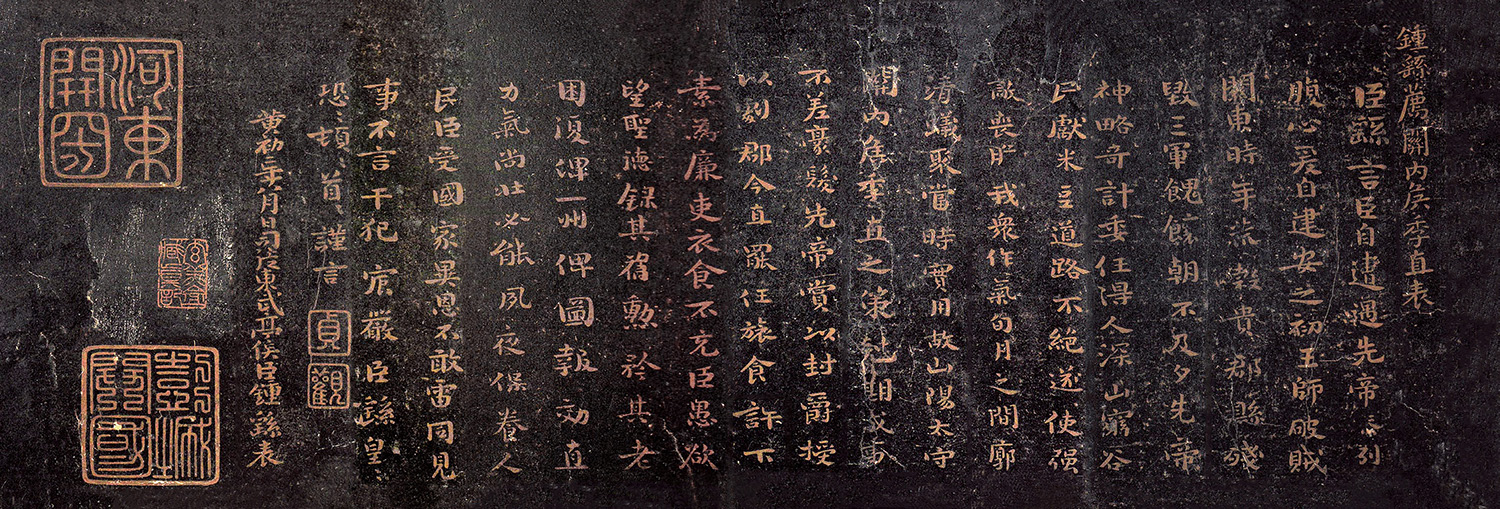 鍾繇薦關内侯季直表
臣繇言臣自遭遇先帝忝列
腹心爰自建安之初王師破賊
關東時年荒穀貴郡縣殘
毀三軍餽饟朝不及夕先帝
神略奇計委任得人深山窮谷
民獻米豆道路不絕遂使强
敵喪膽我衆作氣旬月之間廓
清蟻聚當時實用故山陽太守
關内侯季直之策剋期成事
不差豪髮先帝賞以封爵授
以劇郡今直罷任旅食許下
素為廉吏衣食不充臣愚欲
望聖德錄其舊勲矜其老
困復俾一州俾圖報效直
力氣尚壯必能夙夜保養人
民臣受國家異恩不敢雷同見
事不言干犯宸嚴臣繇皇〻
恐〻頓〻首〻謹言
貞觀
黃初二年八月日司徒東武亭侯臣鍾繇表
河東